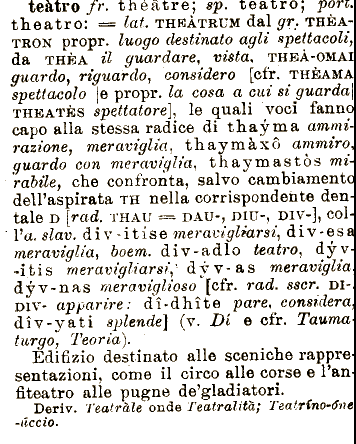 teàtro fr. théatre; sp. teatro; port.
theatro: = lat. THEÀTRUM dal gr. THÈA-
TRON propr. luogo destinato agli spettacoli,
da THÈA il guardare, vista, THEÀ-OMAI
guardo, riguardo, considero [cfr. THÈAMA
spettacolo e propr. la cosa a cui si guarda
THEATÈS spettatore], le quali voci fanno
capo alla stessa radice di thaýma ammi-
razione, meraviglia, thaymàxô ammiro,
guardo con meraviglia, thaymastòs mi-
rabile, che confronta, salvo cambiamento
dell'aspirata TH nella corrispondente den-
tale D [rad. THAU = DAU-, DIU-, DIV-], col-
l'a. slav. div-itise meravigliarsi, div-esa
meraviglia, boem. div-adlo teatro, dýv-
-itis meravigliarsi, dýv-as meraviglia,
dýv-nas meraviglioso [cfr. rad. sscr. DI-
DIV- apparire: dî-dhîte pare, considera,
div-yati splende] (v. Dì e cfr. Tauma-
turgo, Teoria).
Edifizio destinato alle sceniche rappre-
sentazioni, come il circo alle corse e l'an-
fiteatro alle pugne de'gladiatori.
Deriv. Teatràle onde Teatralità; Teatrino-óne
-úccio.